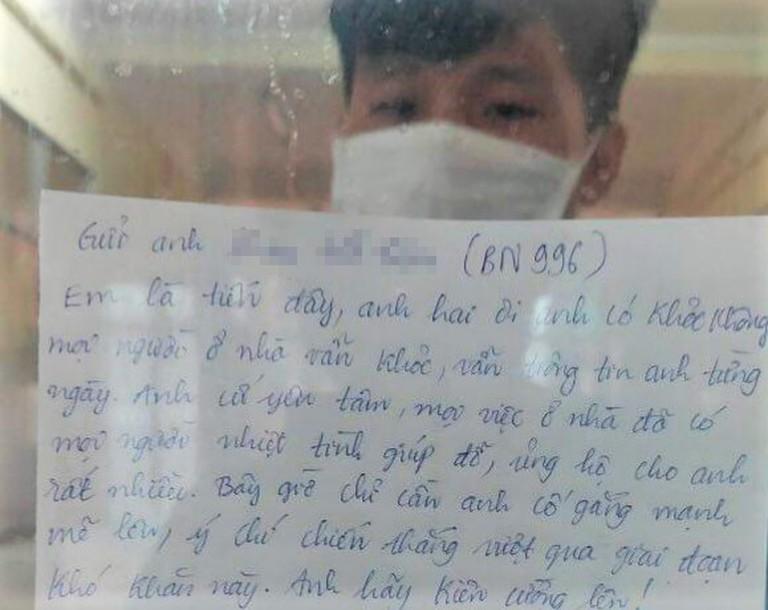 Gửi anh (BN 996)
Em là tiến đây, anh hai ơi anh có khỏe không
mọi người ở nhà vẫn khỏe, vẫn trông tin anh từng
ngày. Anh cứ yên tâm, mọi việc ở nhà đã có
mọi người nhiệt tình giúp đỡ, ủng hộ cho anh
rất nhiều. Bây giờ chỉ cần anh cố gắng mạnh
mẽ lên, ý chí chiến thắng vượt qua giai đoạn
khó khăn này. Anh hãy kiên cường lên!